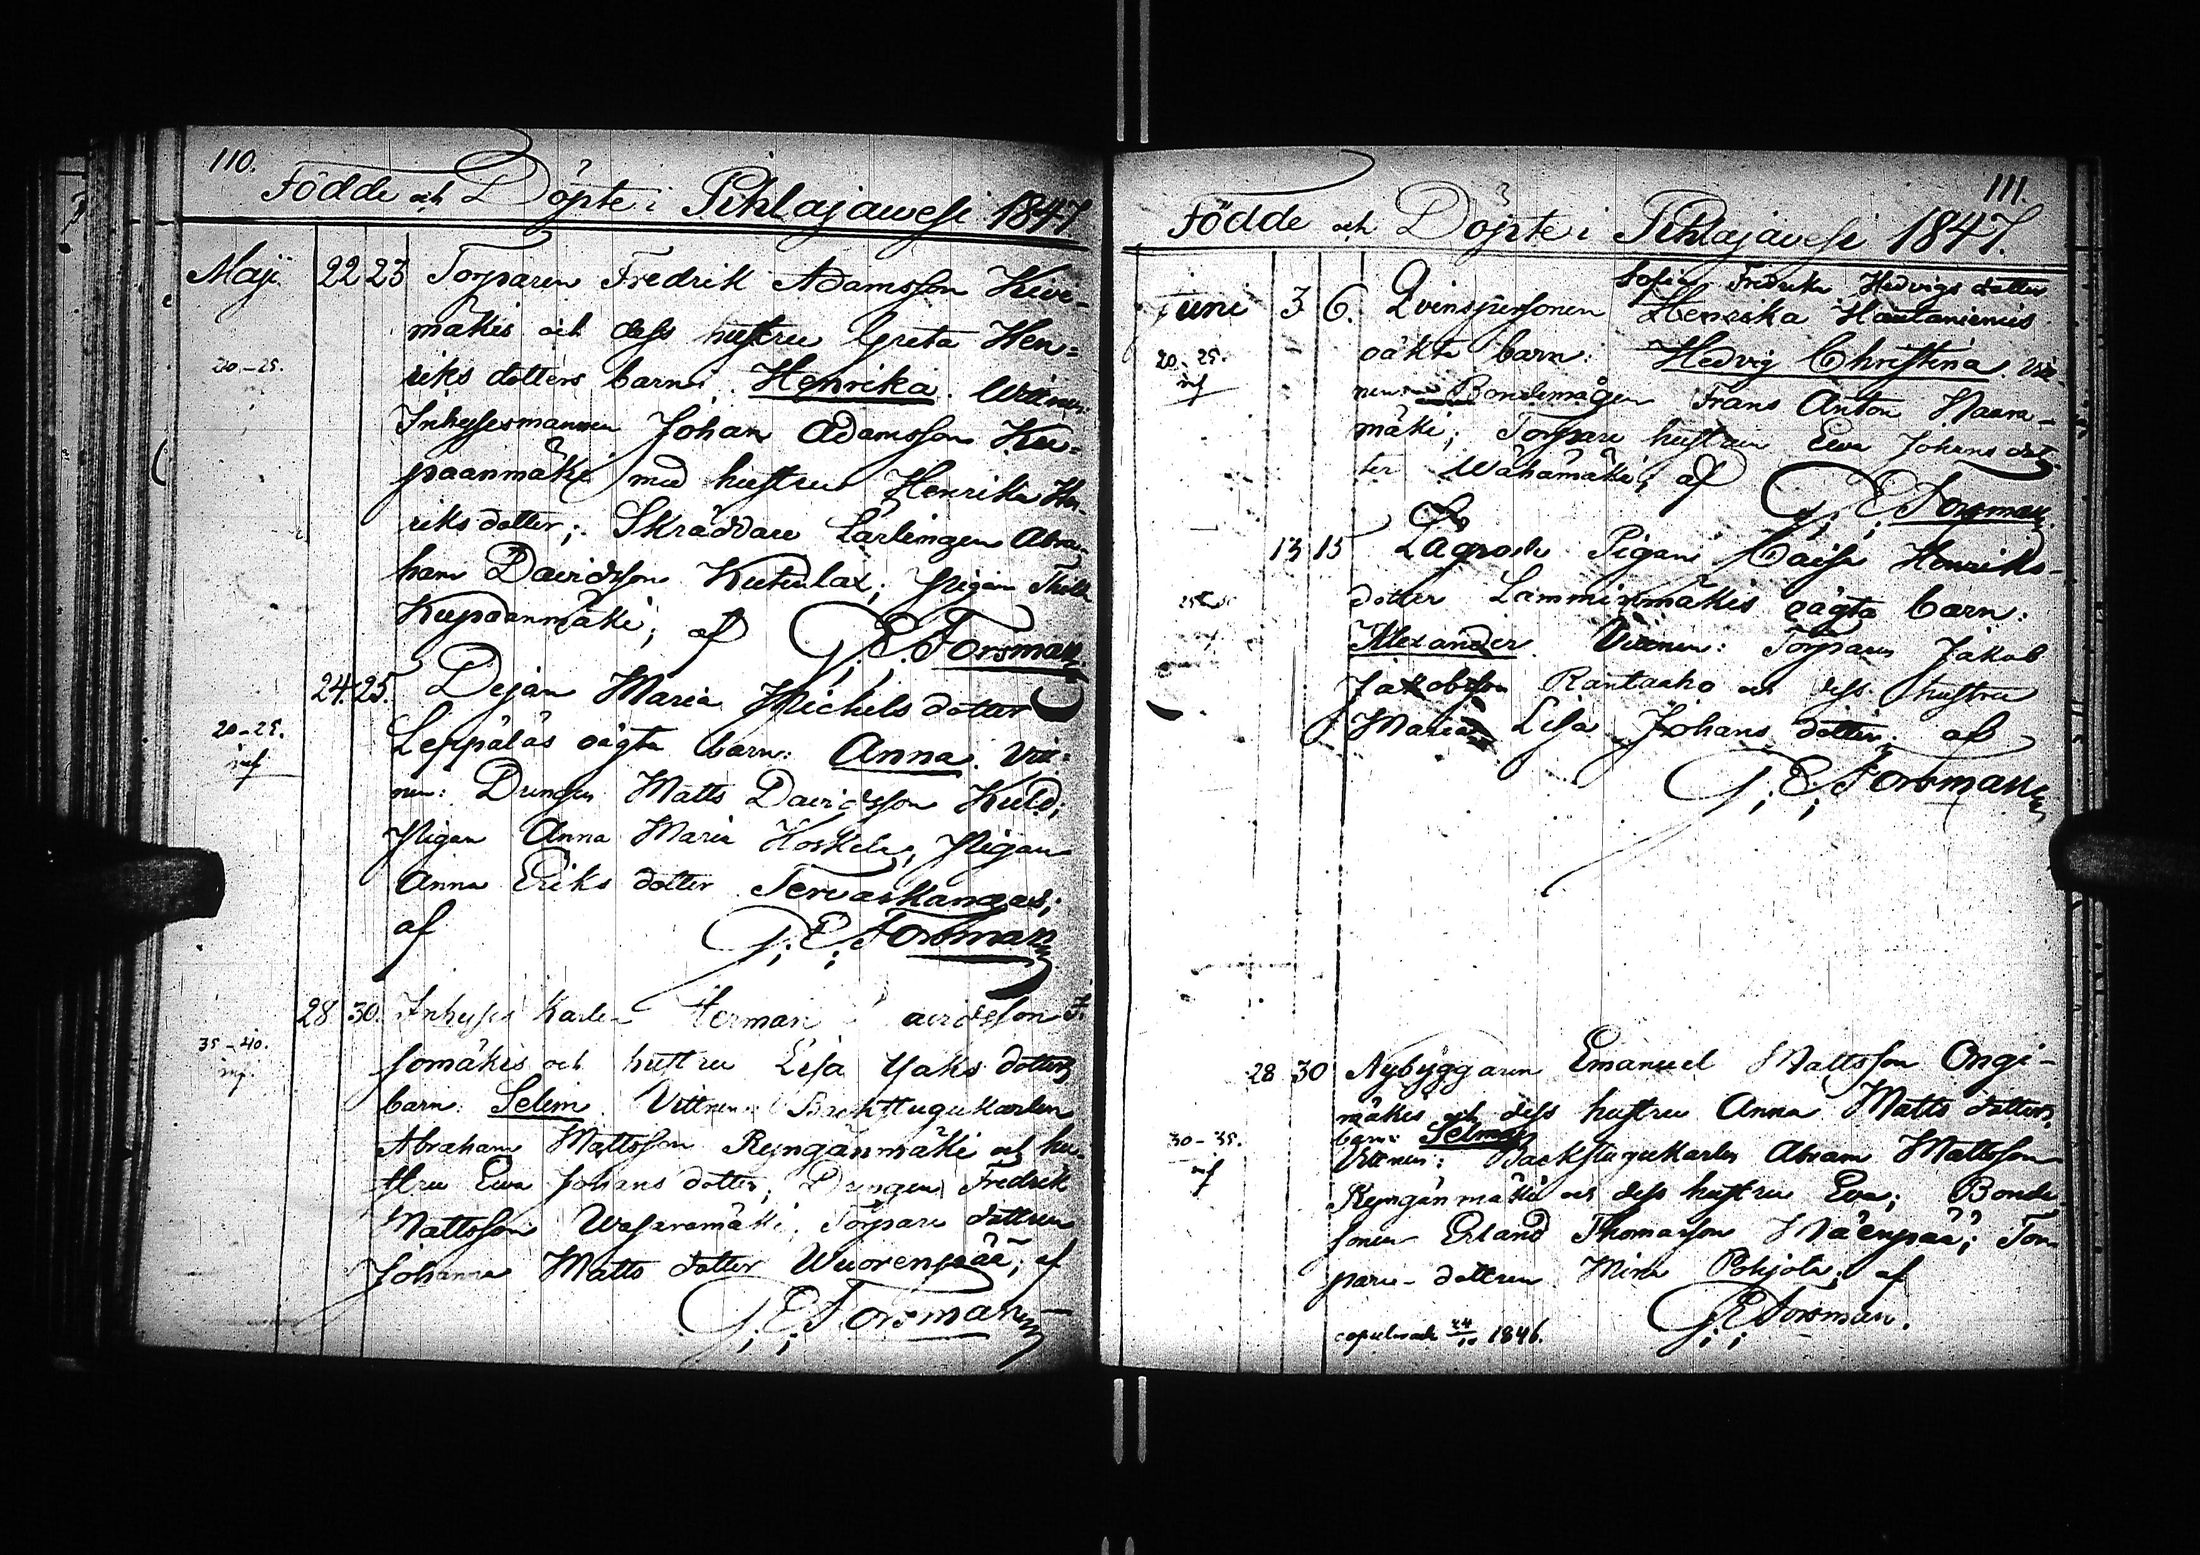 110.
Födde och Döpte i Pihlajawesi 1847
Maji 22 23 Torparen Fredrik Adamsson Kivi-
mäkis och dess hustru Greta Hen-
20-25. riks dotters barn: Henrika. Wittnen:
Inhysesmannen Johan Adamsson Kee-
paanmäki med hustru Henrika Hen-
riks dotter; Skräddare Lärlingen Abra-
ham Davidsson Kutulax; Pigan
Keepaanmäki; af G. E. Forsman.
24. 25. Dejan Maria Michels dotter
20-25. Leppäläs oägta barn: Anna. Vitt-
inf nen: Drengen Matts Davidsson Kuld;
Pigan Anna Maria Koskela; Pigan
Anna Eriks dotter Tervakangas;
af G. E. Forsman
28 30. Inhyses Karlen Herman Davidsson I-
35-40. somäkis och hustru Lisa Isaks dotters
inf. barn: Selim. Vittnen: Backstugukarlen
Abraham Mattsson Ryngänmäki och hu-
stru Ewa Johans dotter; Drengen Fredrik
Mattsson Wasaramäki; Torpare dottren
Johanna Matts dotter Wuorenpää; af
G. E. Forsman
111.
Födde och Döpte i Pihlajavesi 1847.
Sofia Fredrika Hedvigs dotter
Juni 3 6. Qvinspersonen Henrika Hautaniemis
20-25. oäkta barn: Hedvig Christina. Vitt-
inf nen: Bondemågen Frans Anton Naara-
mäki; Torpare hustrun Ewa Johans dot-
ter Wähämäki; af G. E. Forsman.
13 15 Lägrade Pigan Caisa Henriks-
dotter Lamminmäkis oägta barn:
Alexander. Vittnen: Torparen Jakob
Jakobsson Rantaaho och dess hustru
Maria Lisa Johans dotter; af
G. E. Forsman
28 30 Nybyggaren Emanuel Mattsson Ongi-
mäkis och dess hustru Anna Matts dotters
barn: Selma
30-35. Vittnen: Backstugukarlen Abram Mattsson
inf Ryngänmäki och dess hustru Eva; Bonde
sonen Erland Thomasson Mäenpää; Tor-
pare-dottren Mina Pohjola; af
G. E. Forsman.
copulerade 24/10 1846.